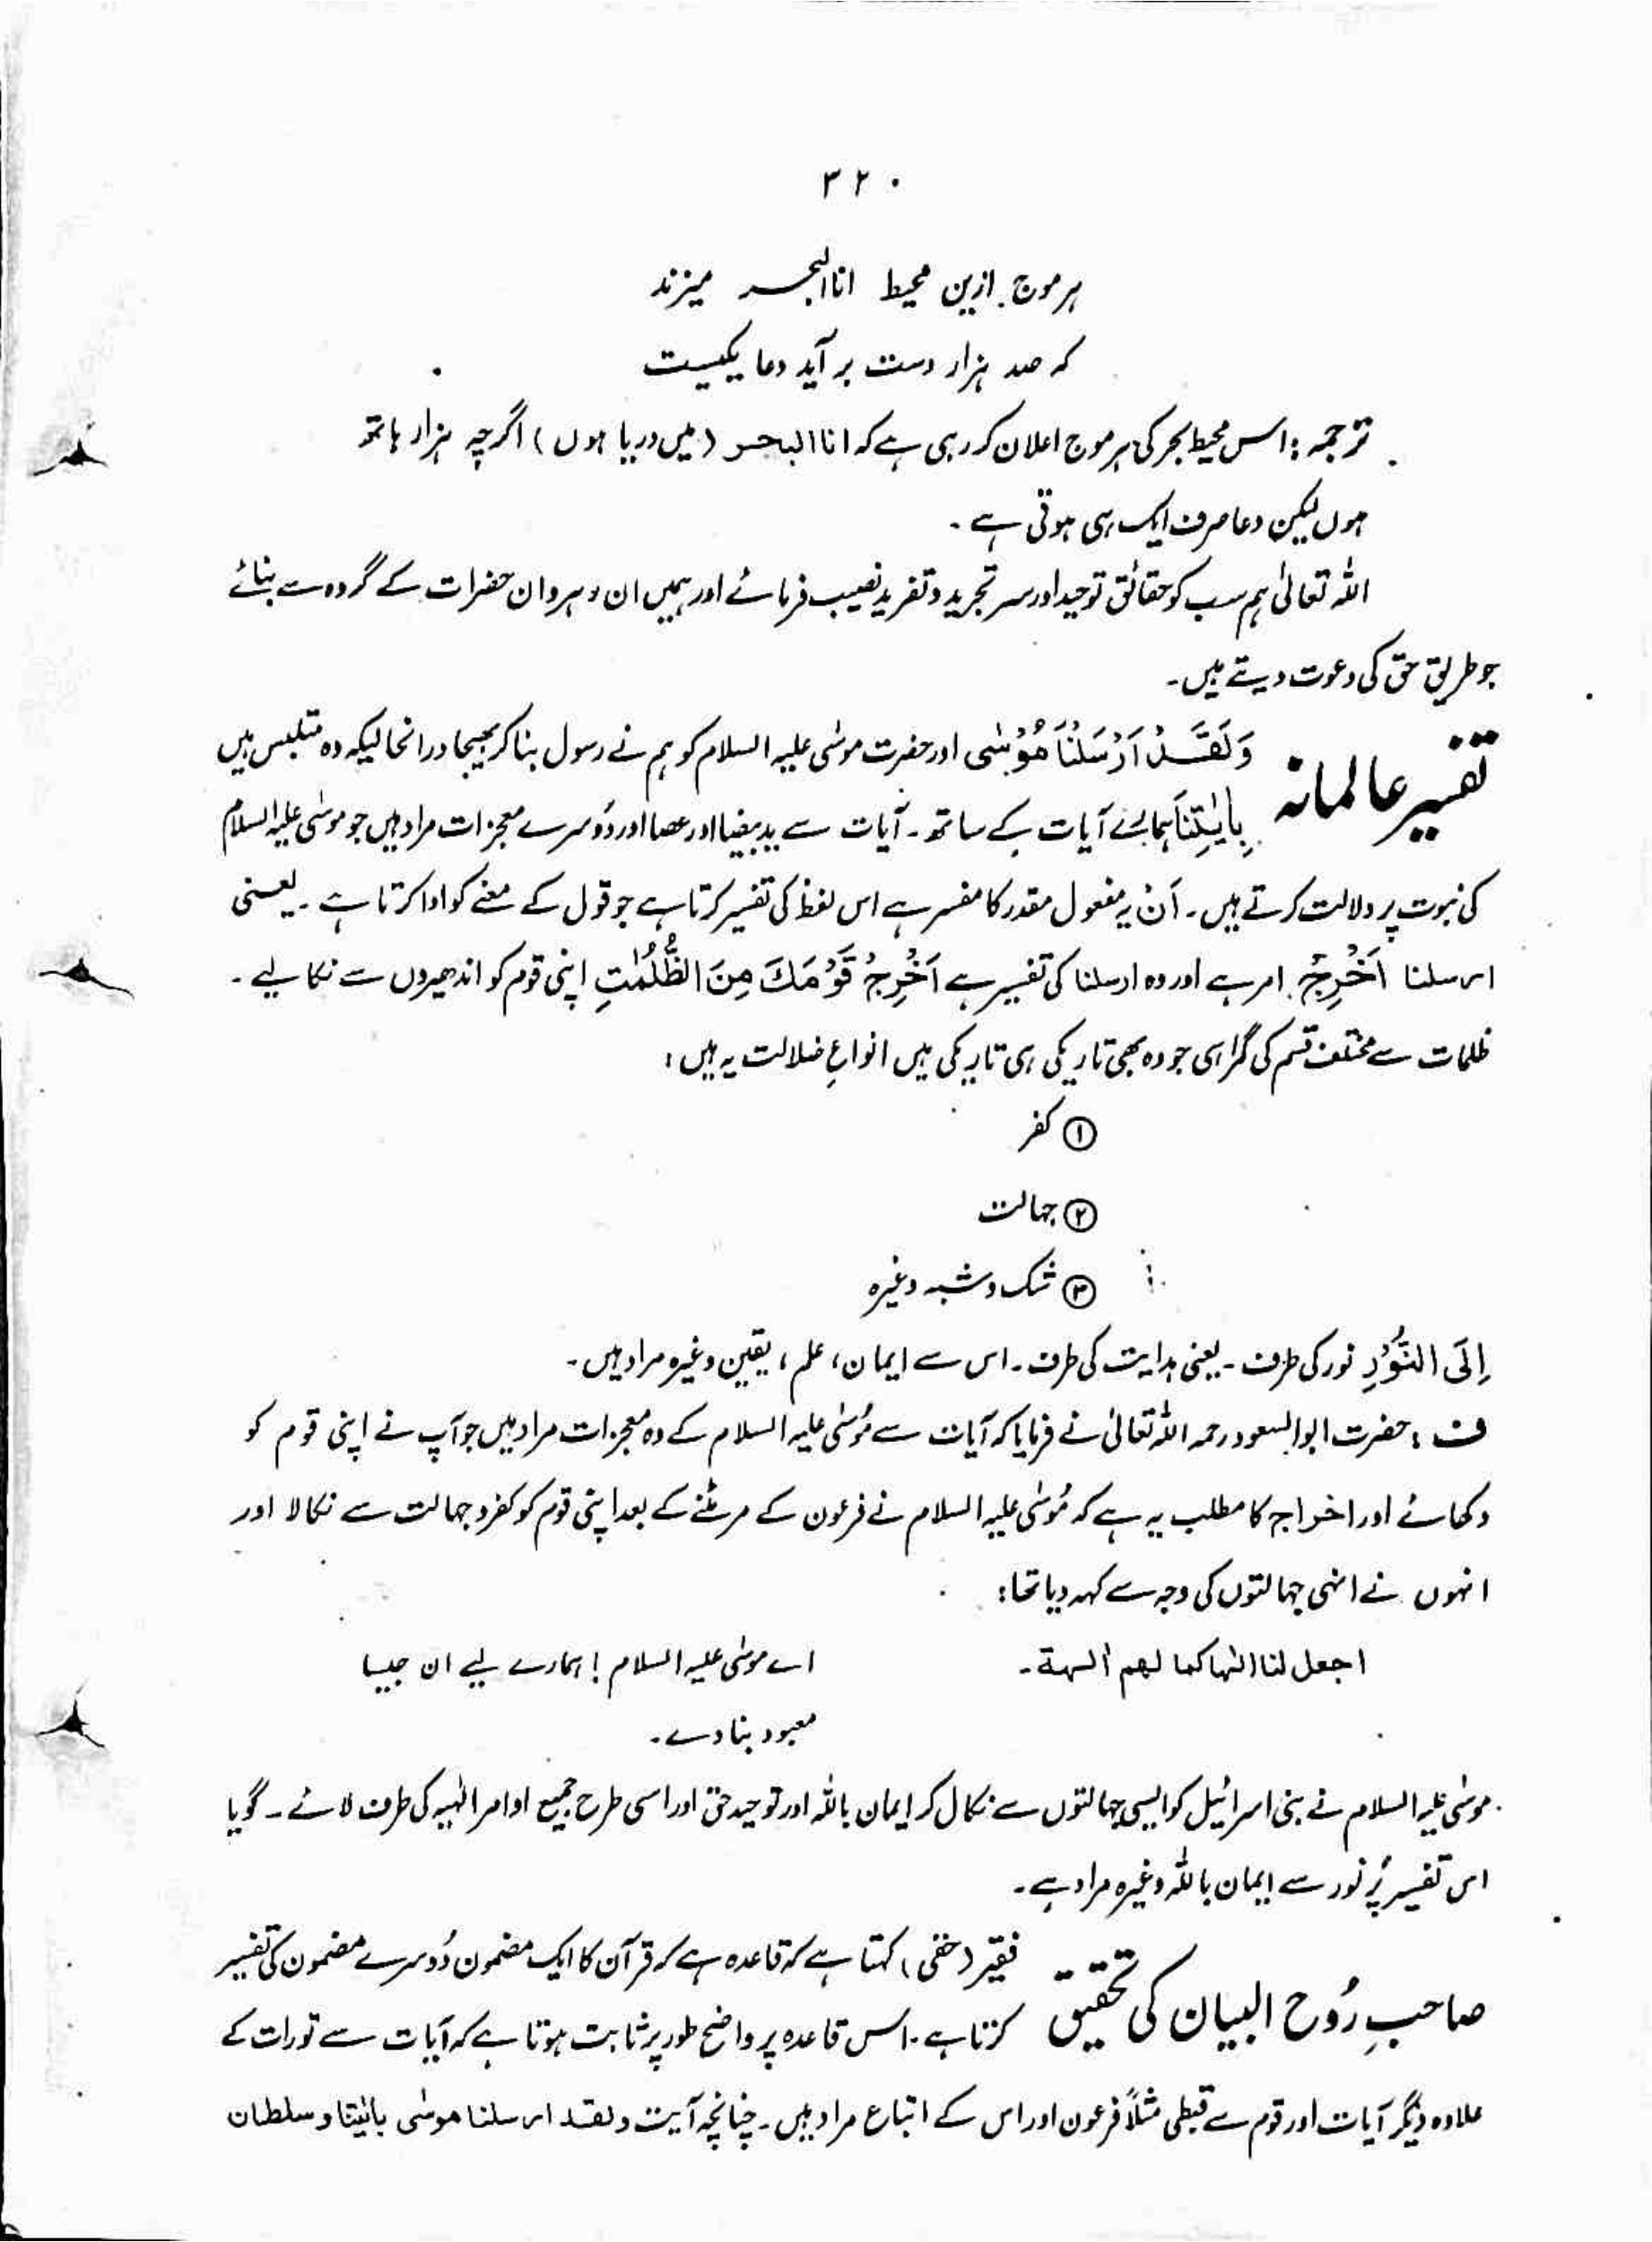 ۳۲۰
ہر موج ازین محیط انا البحر میزند
کہ صد ہزار دست بر آید دعا یکیست
ترجمہ : اس محیط بحر کی ہر موج اعلان کر رہی ہے کہ انا البحر (میں دریا ہوں) اگرچہ ہزار ہاتھ
ہوں لیکن دعا صرف ایک ہی ہوتی ہے ۔
اللہ تعالیٰ ہم سب کو حقائق توحید اور سر تجرید و تفرید نصیب فرمائے اور ہمیں ان رہروان حضرات کے گروہ سے بنائے
جو طریق حق کی دعوت دیتے ہیں۔
تفسیر عالمانہ وَلَقَدْ اَرْسَلْنَا مُوْسٰى اور حضرت موسٰی علیہ السلام کو ہم نے رسول بنا کر بھیجا درانحالیکہ وہ متلبس ہیں
بِاٰيٰتِنَا ہمارے آیات کے ساتھ ۔ آیات سے ید بیضا اور عصا اور دُوسرے معجزات مراد ہیں جو موسٰی علیہ السلام
کی نبوت پر دلالت کرتے ہیں ۔ اَنْ یہ مفعول مقدر کا مفسر ہے اس لفظ کی تفسیر کرتا ہے جو قول کے معنے کو ادا کرتا ہے ۔ یعنی
ارسلنا اَخْرِجْ امر ہے اور وہ ارسلنا کی تفسیر ہے اَخْرِجْ قَوْمَكَ مِنَ الظُّلُمٰتِ اپنی قوم کو اندھیروں سے نکالیے ۔
ظلمات سے مختلف قسم کی گمراہی جو وہ بھی تاریکی ہی تاریکی ہیں انواعِ ضلالت یہ ہیں :
① کفر
② جہالت
③ شک و شبہ وغیرہ
اِلَى النُّوْرِ نور کی طرف ۔ یعنی ہدایت کی طرف ۔ اس سے ایمان، علم ، یقین وغیرہ مراد ہیں ۔
ف : حضرت ابو السعود رحمہ اللہ تعالیٰ نے فرمایا کہ آیات سے مُوسٰی علیہ السلام کے وہ معجزات مراد ہیں جو آپ نے اپنی قوم کو
دکھائے اور اخراج کا مطلب یہ ہے کہ مُوسٰی علیہ السلام نے فرعون کے مر مٹنے کے بعد اپنی قوم کو کفر و جہالت سے نکالا اور
انہوں نے انہی جہالتوں کی وجہ سے کہہ دیا تھا :
اجعل لنا الٰہا کما لھم اٰلہۃ ۔ اے موسٰی علیہ السلام ! ہمارے لیے ان جیسا
معبود بنا دے ۔
موسٰی علیہ السلام نے بنی اسرائیل کو ایسی جہالتوں سے نکال کر ایمان باللہ اور توحید حق اور اسی طرح جمیع اوامر الٰہیہ کی طرف لائے ۔ گویا
اس تفسیر پُر نور سے ایمان باللہ وغیرہ مراد ہے ۔
صاحبِ رُوح البیان کی تحقیق فقیر (حقی) کہتا ہے کہ قاعدہ ہے کہ قرآن کا ایک مضمون دُوسرے مضمون کی تفسیر
کرتا ہے ۔ اس قاعدہ پر واضح طور پر ثابت ہوتا ہے کہ آیات سے تورات کے
علاوہ دیگر آیات اور قوم سے قبطی مثلاً فرعون اور اس کے اتباع مراد ہیں ۔ چنانچہ آیت ولقد ارسلنا موسٰی باٰیٰتنا و سلطان